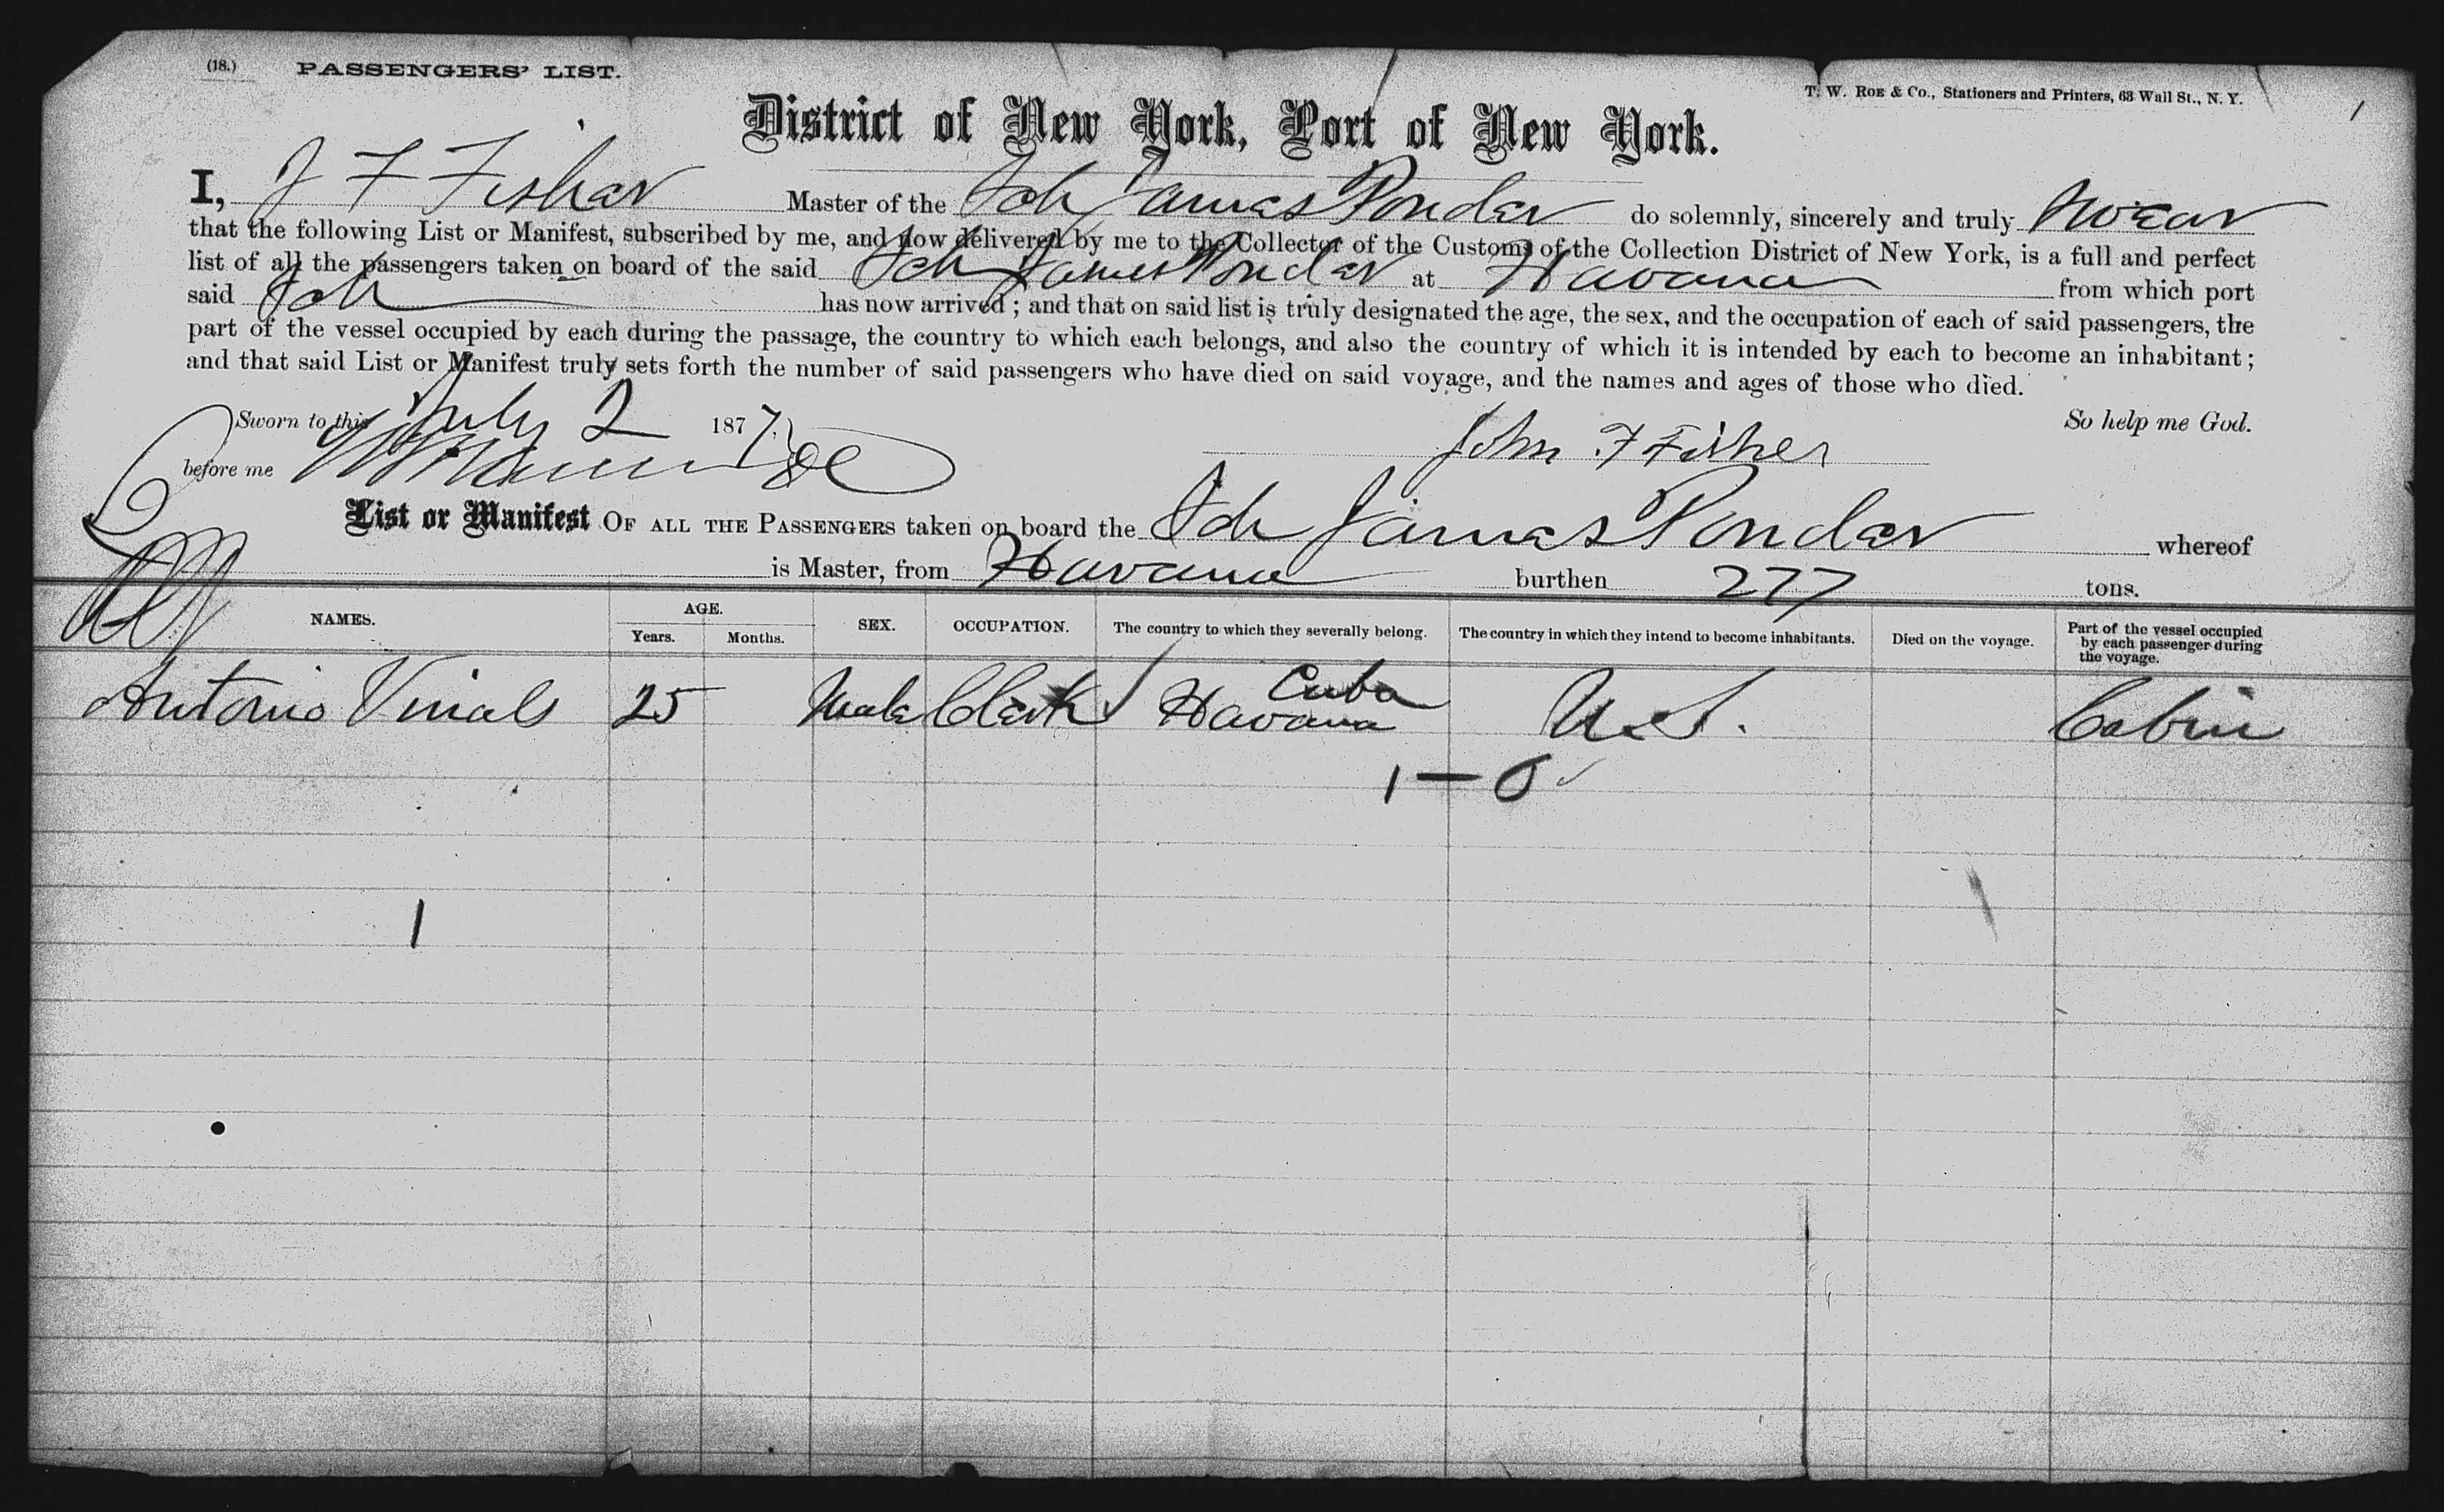 (18.) PASSENGERS' LIST.
T. W. ROE & Co., Stationers and Printers, 63 Wall St., N. Y.
1
District of New York, Port of New York.
I, J F Fisher Master of the Sch James Ponder do solemnly, sincerely and truly swear
that the following List or Manifest, subscribed by me, and now delivered by me to the Collector of the Customs of the Collection District of New York, is a full and perfect
list of all the passengers taken on board of the said Sch James Ponder at Havana from which port
said Sch has now arrived; and that on said list is truly designated the age, the sex, and the occupation of each of said passengers, the
part of the vessel occupied by each during the passage, the country to which each belongs, and also the country of which it is intended by each to become an inhabitant;
and that said List or Manifest truly sets forth the number of said passengers who have died on said voyage, and the names and ages of those who died.
So help me God.
Sworn to this July 2 1877.
John F Fisher
before me
List or Manifest OF ALL THE PASSENGERS taken on board the Sch James Ponder whereof
is Master, from Havana burthen 277 tons.
NAMES. AGE. Years. Months. SEX. OCCUPATION. The country to which they severally belong. The country in which they intend to become inhabitants. Died on the voyage. Part of the vessel occupied by each passenger during the voyage.
Antonio Vinals 25 Male Clerk Havana Cuba U.S. Cabin
1 — 0
1